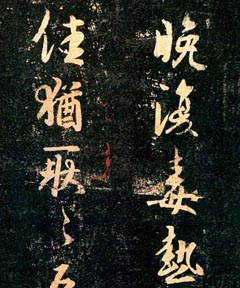 晚復毒熱
佳猶耿々